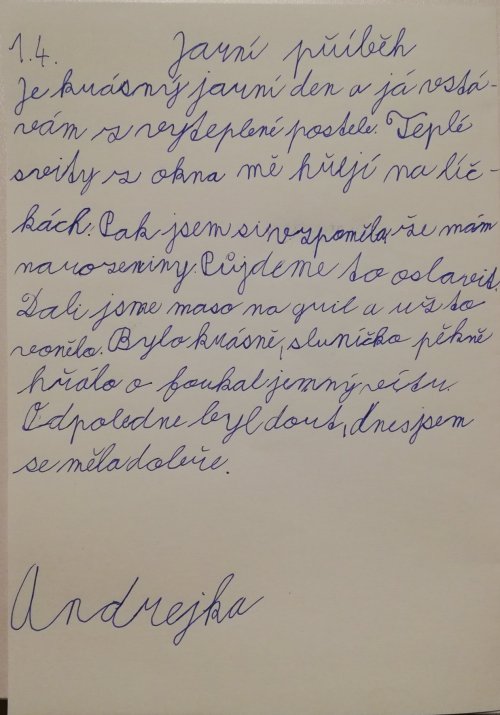 1.4. Jarní příběh
Je krásný jarní den a já vstá-
vám z vyteplené postele. Teplé
svity z okna mě hřejí na líč-
kách. Pak jsem si vzpoměla, že mám
narozeniny. Půjdeme to oslavit.
Dali jsme maso na gril a už to
vonělo. Bylo krásně, sluníčko pěkně
hřálo a foukal jemný vítr.
Odpoledne byl dort, dnes jsem
se měla dobře.
Andrejka